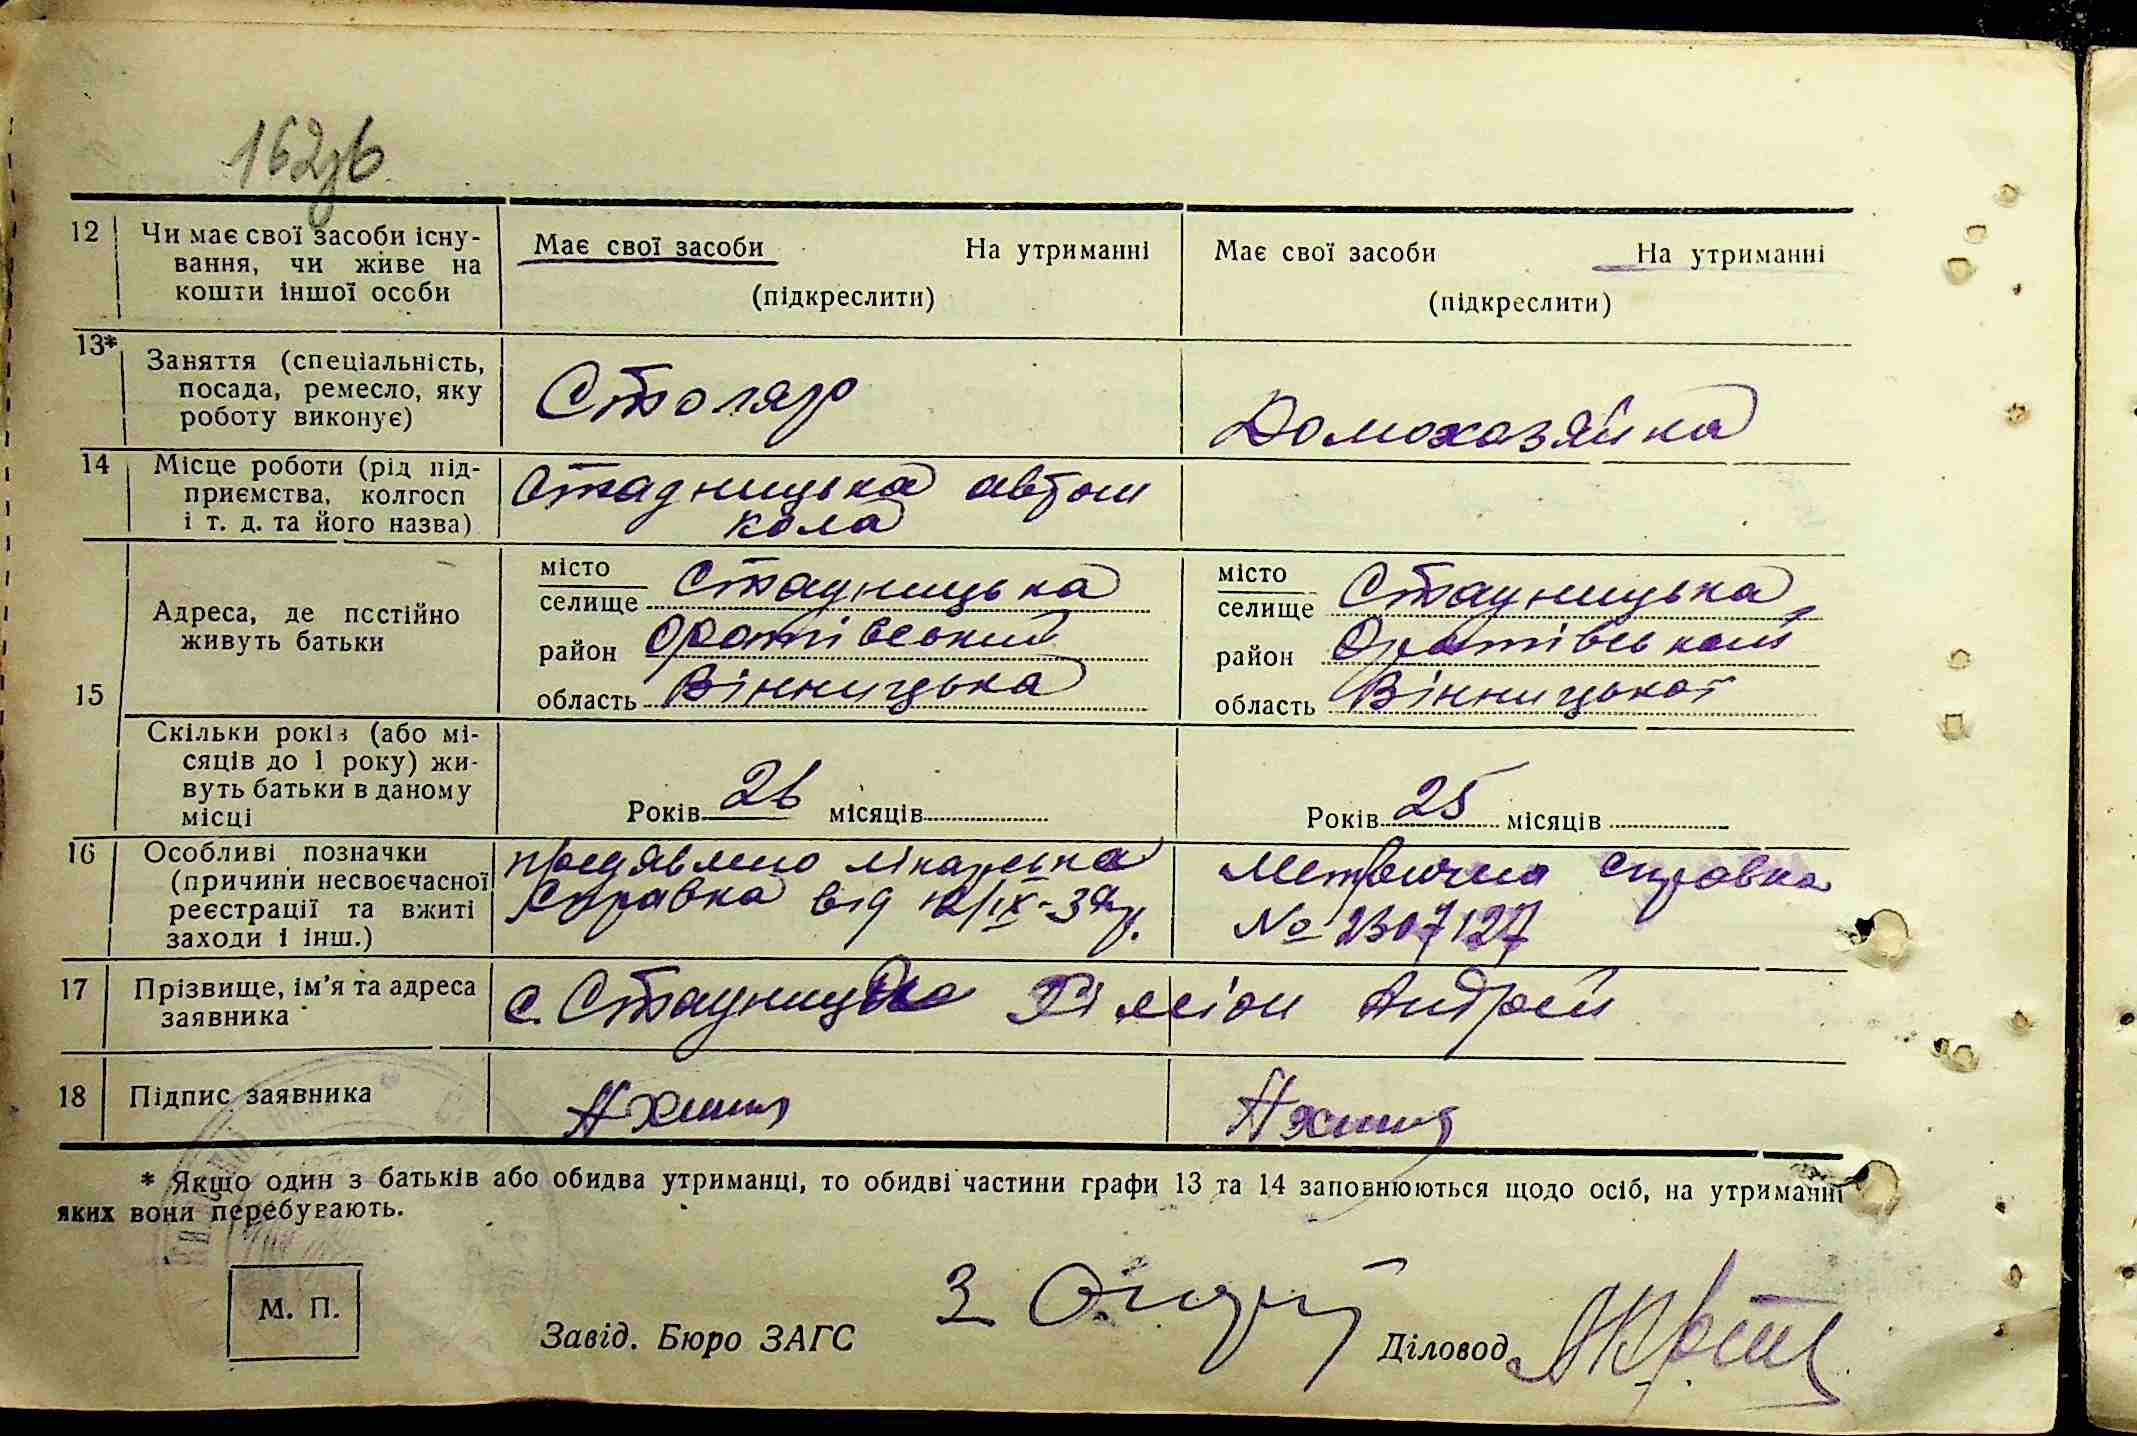 162зв
12 Чи має свої засоби існу-
вання, чи живе на
кошти іншої особи
Має свої засоби На утриманні
(підкреслити)
Має свої засоби На утриманні
(підкреслити)
13* Заняття (спеціальність,
посада, ремесло, яку
роботу виконує)
Столяр
Домохозяйка
14 Місце роботи (рід під-
приємства, колгосп
і т. д. та його назва)
Стадницька автош
кола
15 Адреса, де постійно
живуть батьки
місто
селище Стадницька
район Оратівський
область Вінницька
місто
селище Стадницька
район Оратівський
область Вінницької
Скільки років (або мі-
сяців до 1 року) жи-
вуть батьки в даному
місці
Років 26 місяців
Років 25 місяців
16 Особливі позначки
(причини несвоєчасної
реєстрації та вжиті
заходи і інш.)
лікарська
справка від
Метрична справка
№ 2307127
17 Прізвище, ім'я та адреса
заявника
с. Стадниця Андрей
18 Підпис заявника
* Якщо один з батьків або обидва утриманці, то обидві частини графи 13 та 14 заповнюються щодо осіб, на утриманні
яких вони перебувають.
М. П.
Завід. Бюро ЗАГС
Діловод